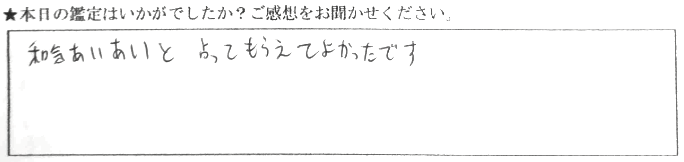 ★本日の鑑定はいかがでしたか？ご感想をお聞かせください。
和気あいあいと 占ってもらえてよかったです